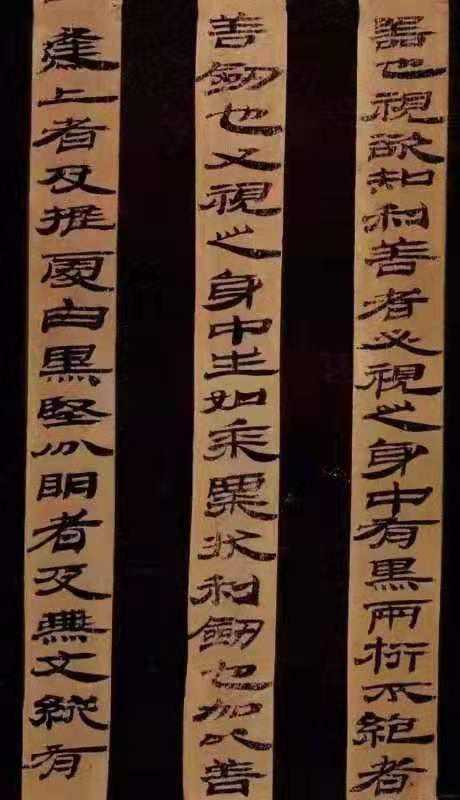 器也視欲知利善者必視之身中有黑兩桁不絕者
善劒也又視之身中生如黍粟狀利劒也加以善
逢上者及推處白黑堅分明者及無文縱有